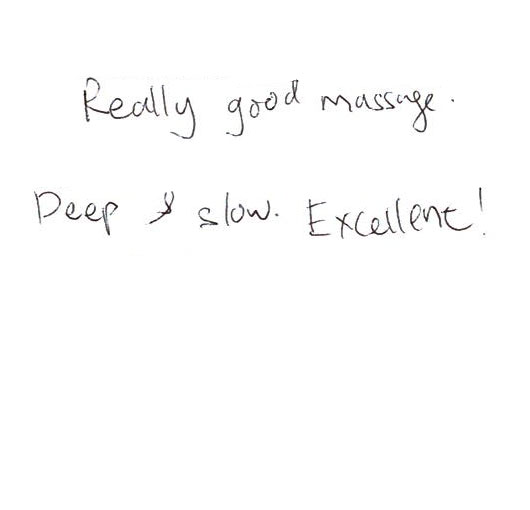 Really good massage.
Deep & slow. Excellent!